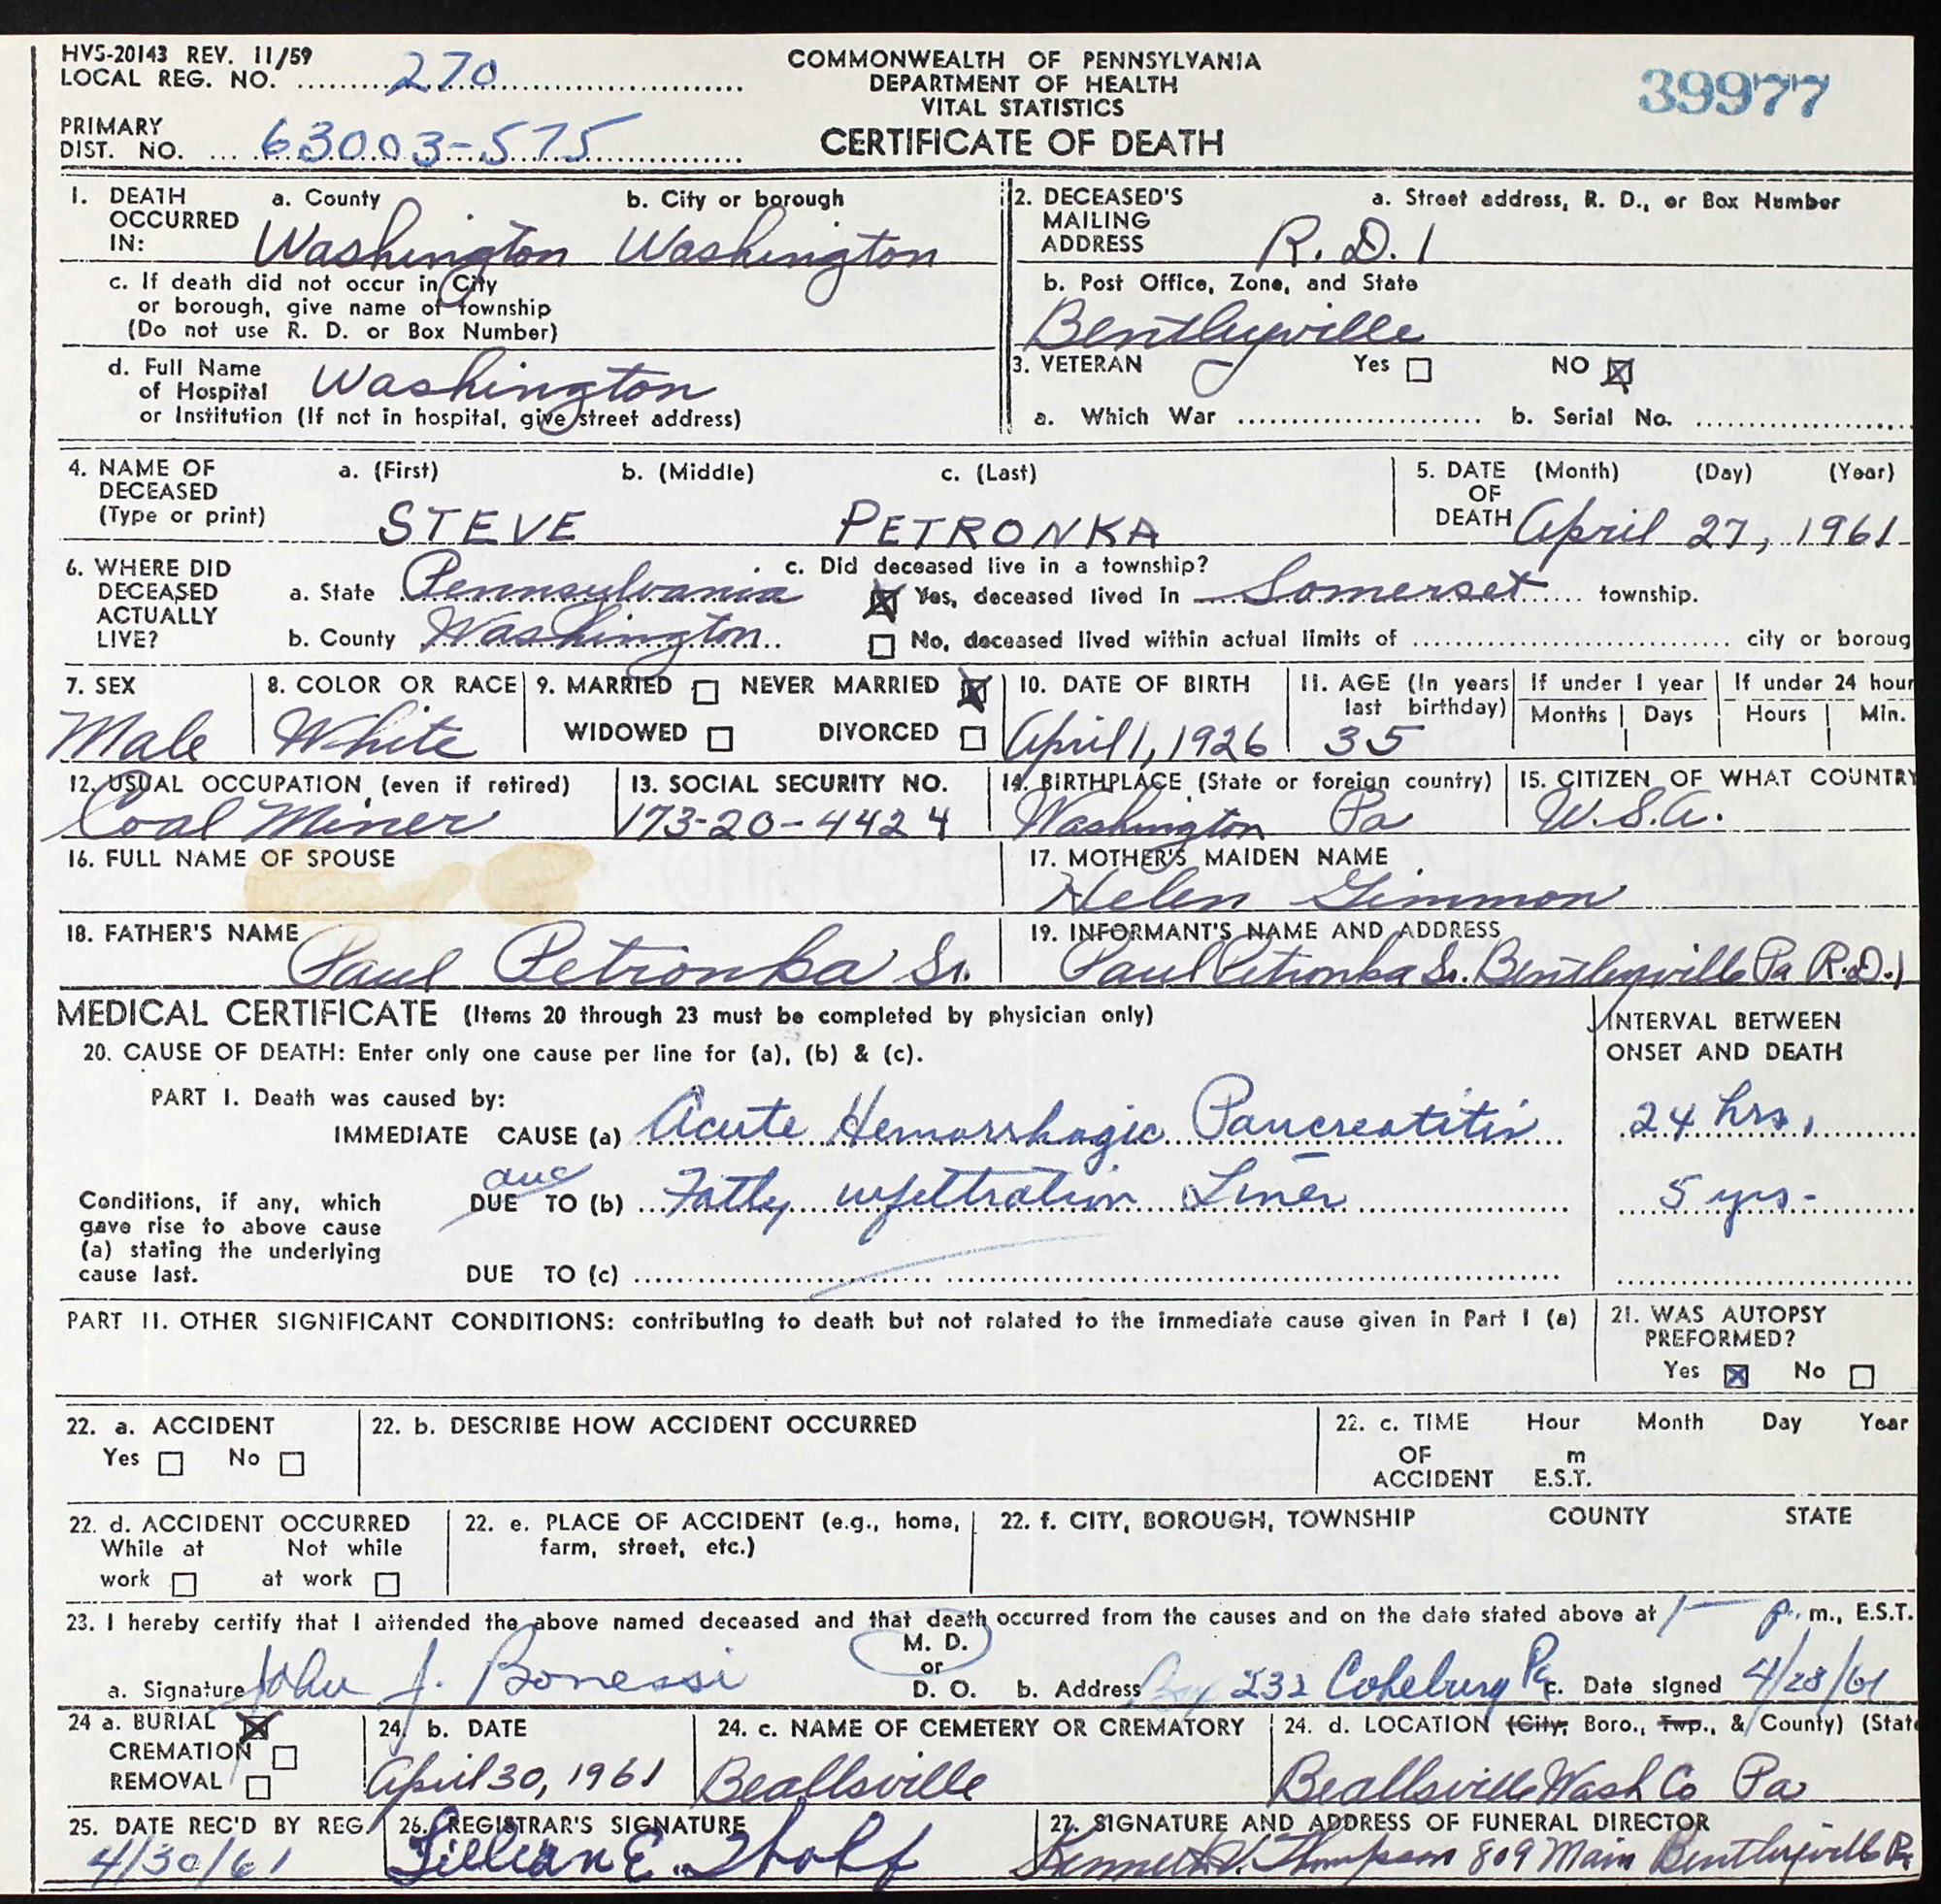 HVS-20143 REV. 11/59
LOCAL REG. NO. 270
COMMONWEALTH OF PENNSYLVANIA
DEPARTMENT OF HEALTH
VITAL STATISTICS
CERTIFICATE OF DEATH
39977
PRIMARY
DIST. NO. 63003-575
1. DEATH OCCURRED IN: a. County b. City or borough
Washington Washington
c. If death did not occur in City
or borough, give name of township
(Do not use R. D. or Box Number)
d. Full Name
of Hospital Washington
or Institution (If not in hospital, give street address)
2. DECEASED'S MAILING ADDRESS a. Street address, R. D., or Box Number
R.D. 1
b. Post Office, Zone, and State
Bentleyville
3. VETERAN Yes NO
a. Which War b. Serial No.
4. NAME OF DECEASED (Type or print) a. (First) b. (Middle) c. (Last)
STEVE PETRONKA
5. DATE OF DEATH (Month) (Day) (Year)
April 27, 1961
6. WHERE DID DECEASED ACTUALLY LIVE?
a. State Pennsylvania
b. County Washington
c. Did deceased live in a township?
Yes, deceased lived in Somerset township.
No, deceased lived within actual limits of city or boroug
7. SEX
Male
8. COLOR OR RACE
White
9. MARRIED NEVER MARRIED
WIDOWED DIVORCED
10. DATE OF BIRTH
April 1, 1926
11. AGE (In years last birthday)
35
If under 1 year
Months Days
If under 24 hour
Hours Min.
12. USUAL OCCUPATION (even if retired)
Coal Miner
13. SOCIAL SECURITY NO.
173-20-4424
14. BIRTHPLACE (State or foreign country)
Washington Pa
15. CITIZEN OF WHAT COUNTRY
U.S.A.
16. FULL NAME OF SPOUSE
17. MOTHER'S MAIDEN NAME
Helen Gimmon
18. FATHER'S NAME
Paul Petronka Sr.
19. INFORMANT'S NAME AND ADDRESS
Paul Petronka Sr. Bentleyville Pa R.D.1
MEDICAL CERTIFICATE (Items 20 through 23 must be completed by physician only)
INTERVAL BETWEEN
ONSET AND DEATH
20. CAUSE OF DEATH: Enter only one cause per line for (a), (b) & (c).
PART I. Death was caused by:
IMMEDIATE CAUSE (a) Acute Hemorrhagic Pancreatitis 24 hrs.
and
Conditions, if any, which
gave rise to above cause
(a) stating the underlying
cause last.
DUE TO (b) Fatty infiltration Liver 5 yrs-
DUE TO (c)
PART II. OTHER SIGNIFICANT CONDITIONS: contributing to death but not related to the immediate cause given in Part I (a)
21. WAS AUTOPSY
PREFORMED?
Yes No
22. a. ACCIDENT
Yes No
22. b. DESCRIBE HOW ACCIDENT OCCURRED
22. c. TIME Hour Month Day Year
OF m
ACCIDENT E.S.T.
22. d. ACCIDENT OCCURRED
While at Not while
work at work
22. e. PLACE OF ACCIDENT (e.g., home,
farm, street, etc.)
22. f. CITY, BOROUGH, TOWNSHIP COUNTY STATE
23. I hereby certify that I attended the above named deceased and that death occurred from the causes and on the date stated above at 1 p. m., E.S.T.
a. Signature John J. Bonessi M. D. or D. O. b. Address Box 232 Cokeburg Pa c. Date signed 4/28/61
24 a. BURIAL
CREMATION
REMOVAL
24. b. DATE
April 30, 1961
24. c. NAME OF CEMETERY OR CREMATORY
Beallsville
24. d. LOCATION (City, Boro., Twp., & County) (State
Beallsville Wash Co Pa
25. DATE REC'D BY REG.
4/30/61
26. REGISTRAR'S SIGNATURE
Lillian E.
27. SIGNATURE AND ADDRESS OF FUNERAL DIRECTOR
Kenneth V. Thompson 809 Main Bentleyville Pa